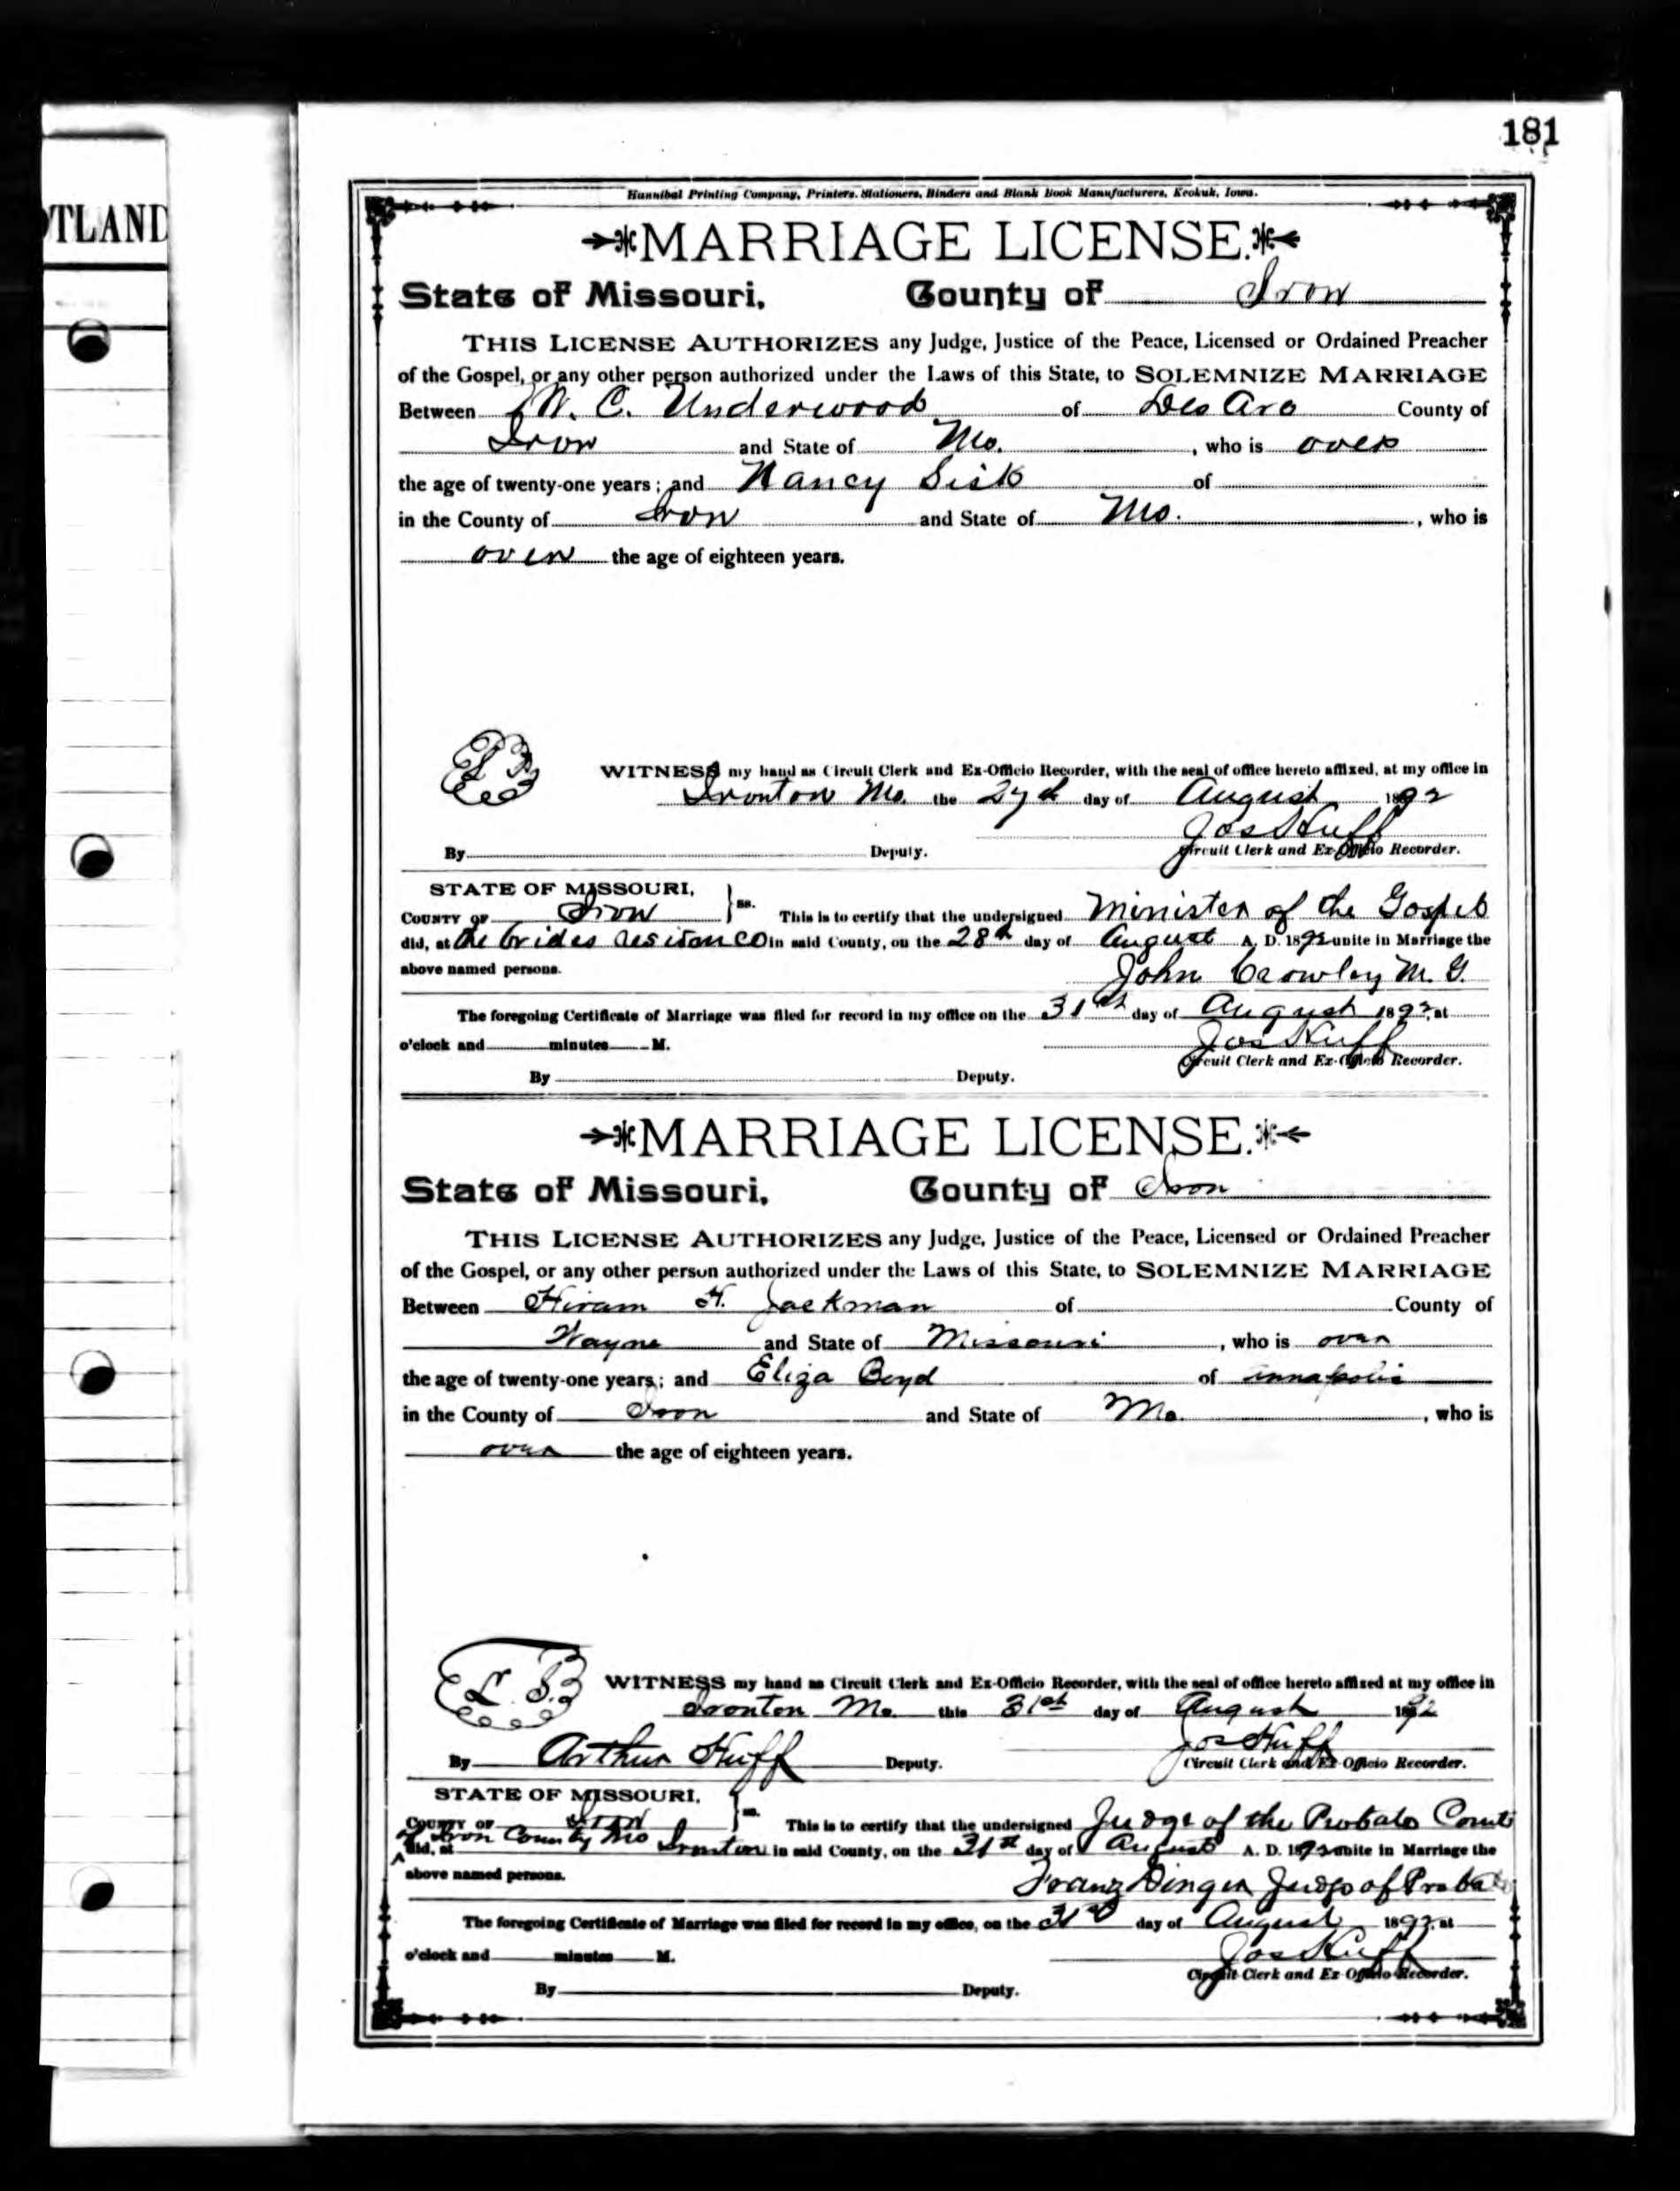 181
TLAND
Hannibal Printing Company, Printers, Stationers, Binders and Blank Book Manufacturers, Keokuk, Iowa.
MARRIAGE LICENSE.
State of Missouri, County of Iron
THIS LICENSE AUTHORIZES any Judge, Justice of the Peace, Licensed or Ordained Preacher
of the Gospel, or any other person authorized under the Laws of this State, to SOLEMNIZE MARRIAGE
Between W. C. Underwood of Des Arc County of
Iron and State of Mo. , who is over
the age of twenty-one years; and Nancy Sisk of
in the County of Iron and State of Mo. , who is
over the age of eighteen years.
WITNESS my hand as Circuit Clerk and Ex-Officio Recorder, with the seal of office hereto affixed, at my office in
Ironton Mo. the 27th day of August 1892
Jos Huff
By Deputy. Circuit Clerk and Ex-Officio Recorder.
STATE OF MISSOURI,
COUNTY OF Iron } ss. This is to certify that the undersigned Minister of the Gospel
did, at the brides residence in said County, on the 28th day of August A. D. 1892 unite in Marriage the
above named persons. John Crowley M. G.
The foregoing Certificate of Marriage was filed for record in my office on the 31st day of August 1892, at
o'clock and minutes M. Jos Huff
Circuit Clerk and Ex-Officio Recorder.
By Deputy.
MARRIAGE LICENSE.
State of Missouri, County of Iron
THIS LICENSE AUTHORIZES any Judge, Justice of the Peace, Licensed or Ordained Preacher
of the Gospel, or any other person authorized under the Laws of this State, to SOLEMNIZE MARRIAGE
Between Hiram H. Jackman of County of
Wayne and State of Missouri , who is over
the age of twenty-one years; and Eliza Boyd of Annapolis
in the County of Iron and State of Mo. , who is
over the age of eighteen years.
L. S. WITNESS my hand as Circuit Clerk and Ex-Officio Recorder, with the seal of office hereto affixed at my office in
Ironton Mo. this 31st day of August 1892
Jos Huff
By Arthur Huff Deputy. Circuit Clerk and Ex Officio Recorder.
STATE OF MISSOURI,
COUNTY OF Iron } ss. This is to certify that the undersigned Judge of the Probate Court
of Iron County Mo
did, at Ironton in said County, on the 31st day of August A. D. 1892 unite in Marriage the
above named persons. Franz Dinger Judge of Probate
The foregoing Certificate of Marriage was filed for record in my office, on the 31st day of August 1892, at
o'clock and minutes M. Jos Huff
Circuit Clerk and Ex Officio Recorder.
By Deputy.